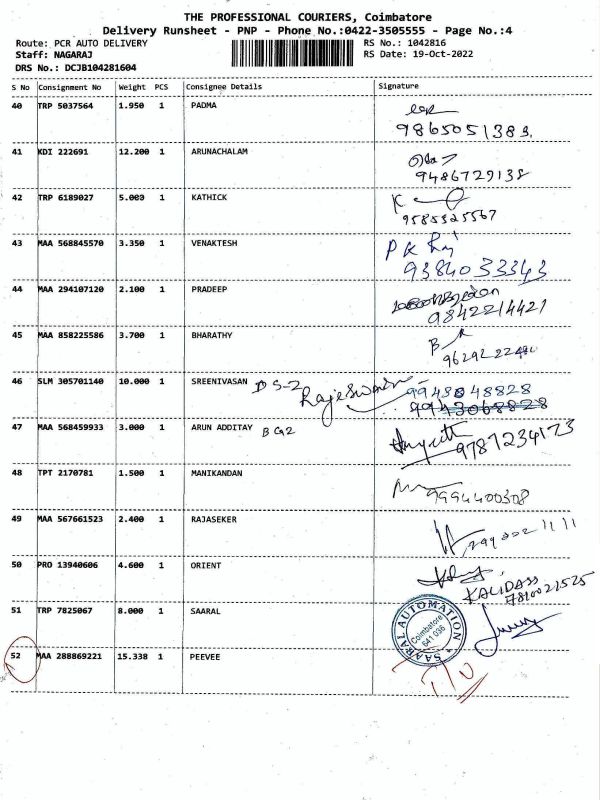 THE PROFESSIONAL COURIERS, Coimbatore
Delivery Runsheet - PNP - Phone No.:0422-3505555 - Page No.:4
Route: PCR AUTO DELIVERY
RS No.: 1042816
Staff: NAGARAJ
RS Date: 19-Oct-2022
DRS No.: DCJB104281604
S No Consignment No Weight PCS Consignee Details Signature
40 TRP 5037564 1.950 1 PADMA
9865051383
41 KDI 222691 12.200 1 ARUNACHALAM
9486729138
42 TRP 6189027 5.000 1 KATHICK K
9585325567
43 MAA 568845570 3.350 1 VENAKTESH P K Raj
9384033343
44 MAA 294107120 2.100 1 PRADEEP
9842214421
45 MAA 858225586 3.700 1 BHARATHY B R
46 SLM 305701140 10.000 1 SREENIVASAN D S-2 Rajeswari
47 MAA 568459933 3.000 1 ARUN ADDITAY B G2
9787234173
48 TPT 2170781 1.500 1 MANIKANDAN
9994400308
49 MAA 567661523 2.400 1 RAJASEKER
50 PRO 13940606 4.600 1 ORIENT
KALIDASS
7810021525
51 TRP 7825067 8.000 1 SAARAL
SAARAL AUTOMATION
Coimbatore
641 036
52 MAA 288869221 15.338 1 PEEVEE